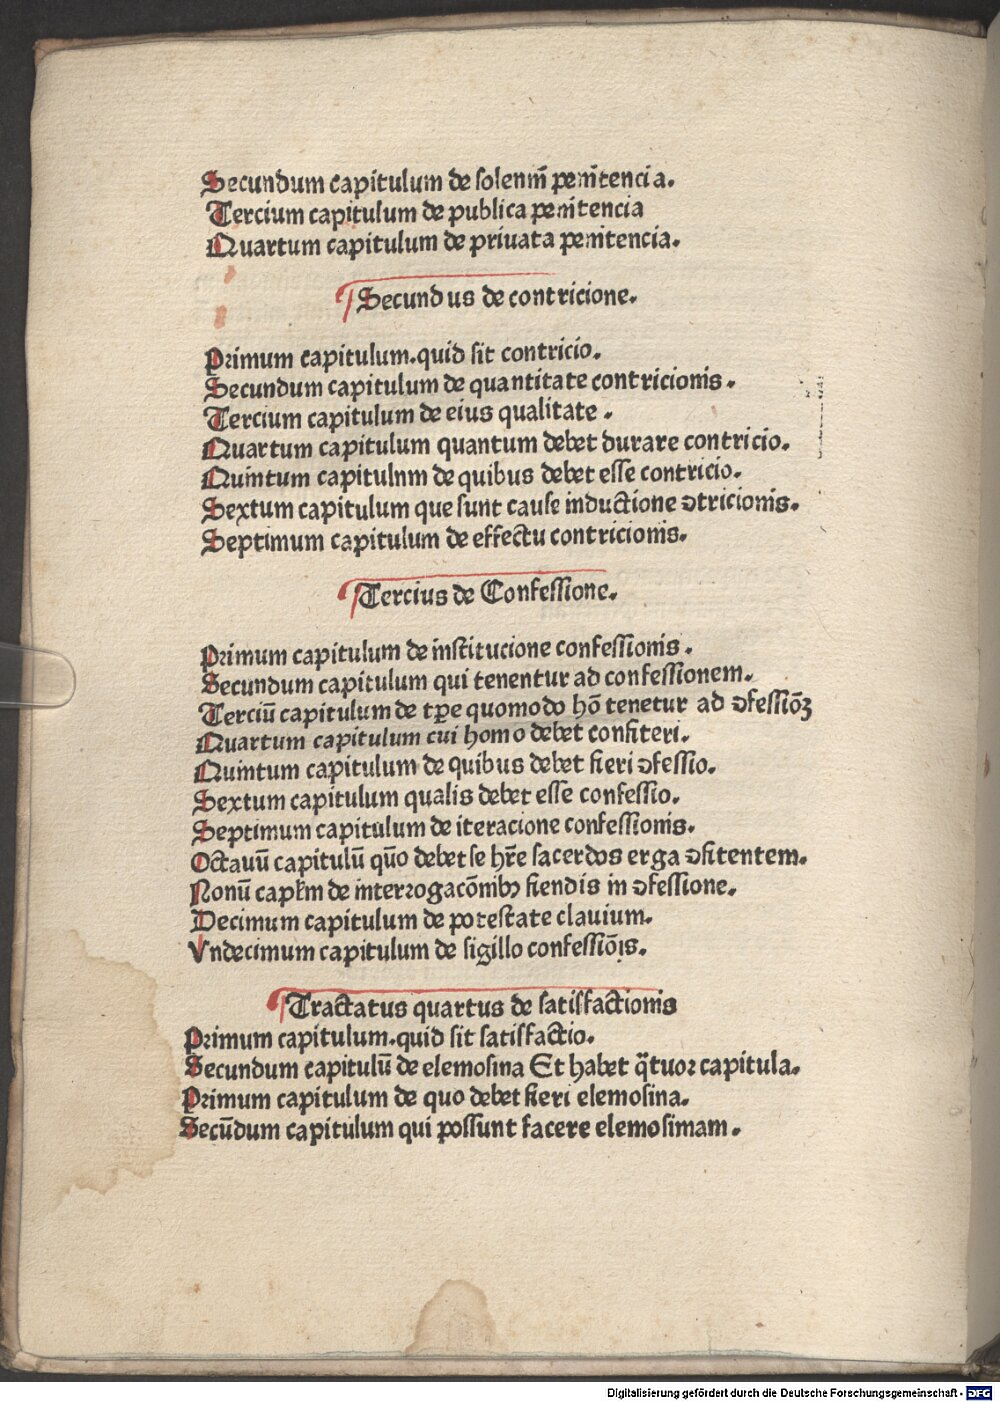 Secundum capitulum de solenni̅ penitencia.
Tercium capitulum de publica penitencia
Quartum capitulum de priuata penitencia.
Secundus de contricione.
Primum capitulum.quid sit contricio.
Secundum capitulum de quantitate contricionis.
Tercium capitulum de eius qualitate.
Quartum capitulum quantum debet durare contricio.
Quintum capitulnm de quibus debet esse contricio.
Sextum capitulum que sunt cause inductione ↄtricionis.
Septimum capitulum de effectu contricionis.
Tercius de Confessione.
Primum capitulum de institucione confessionis.
Secundum capitulum qui tenentur ad confessionem.
Terciū capitulum de tꝑe quomodo hō tenetur ad ↄfessiōꝫ
Quartum capitulum cui homo debet confiteri.
Quintum capitulum de quibus debet fieri ↄfessio.
Sextum capitulum qualis debet esse confessio.
Septimum capitulum de iteracione confessionis.
Octauū capitulū qūo debet se hr̄e sacerdos erga ↄfitentem.
Nonū capkm de interrogacōnibꝫ fiendis in ↄfessione.
Decimum capitulum de potestate clauium.
Vndecimum capitulum de sigillo confessiōis.
Tractatus quartus de satisfactionis
Primum capitulum.quid sit satisfactio.
Secundum capitulū de elemosina Et habet q̄tuor capitula.
Primum capitulum de quo debet fieri elemosina.
Secūdum capitulum qui possunt facere elemosimam.
Digitalisierung gefördert durch die Deutsche Forschungsgemeinschaft - DFG